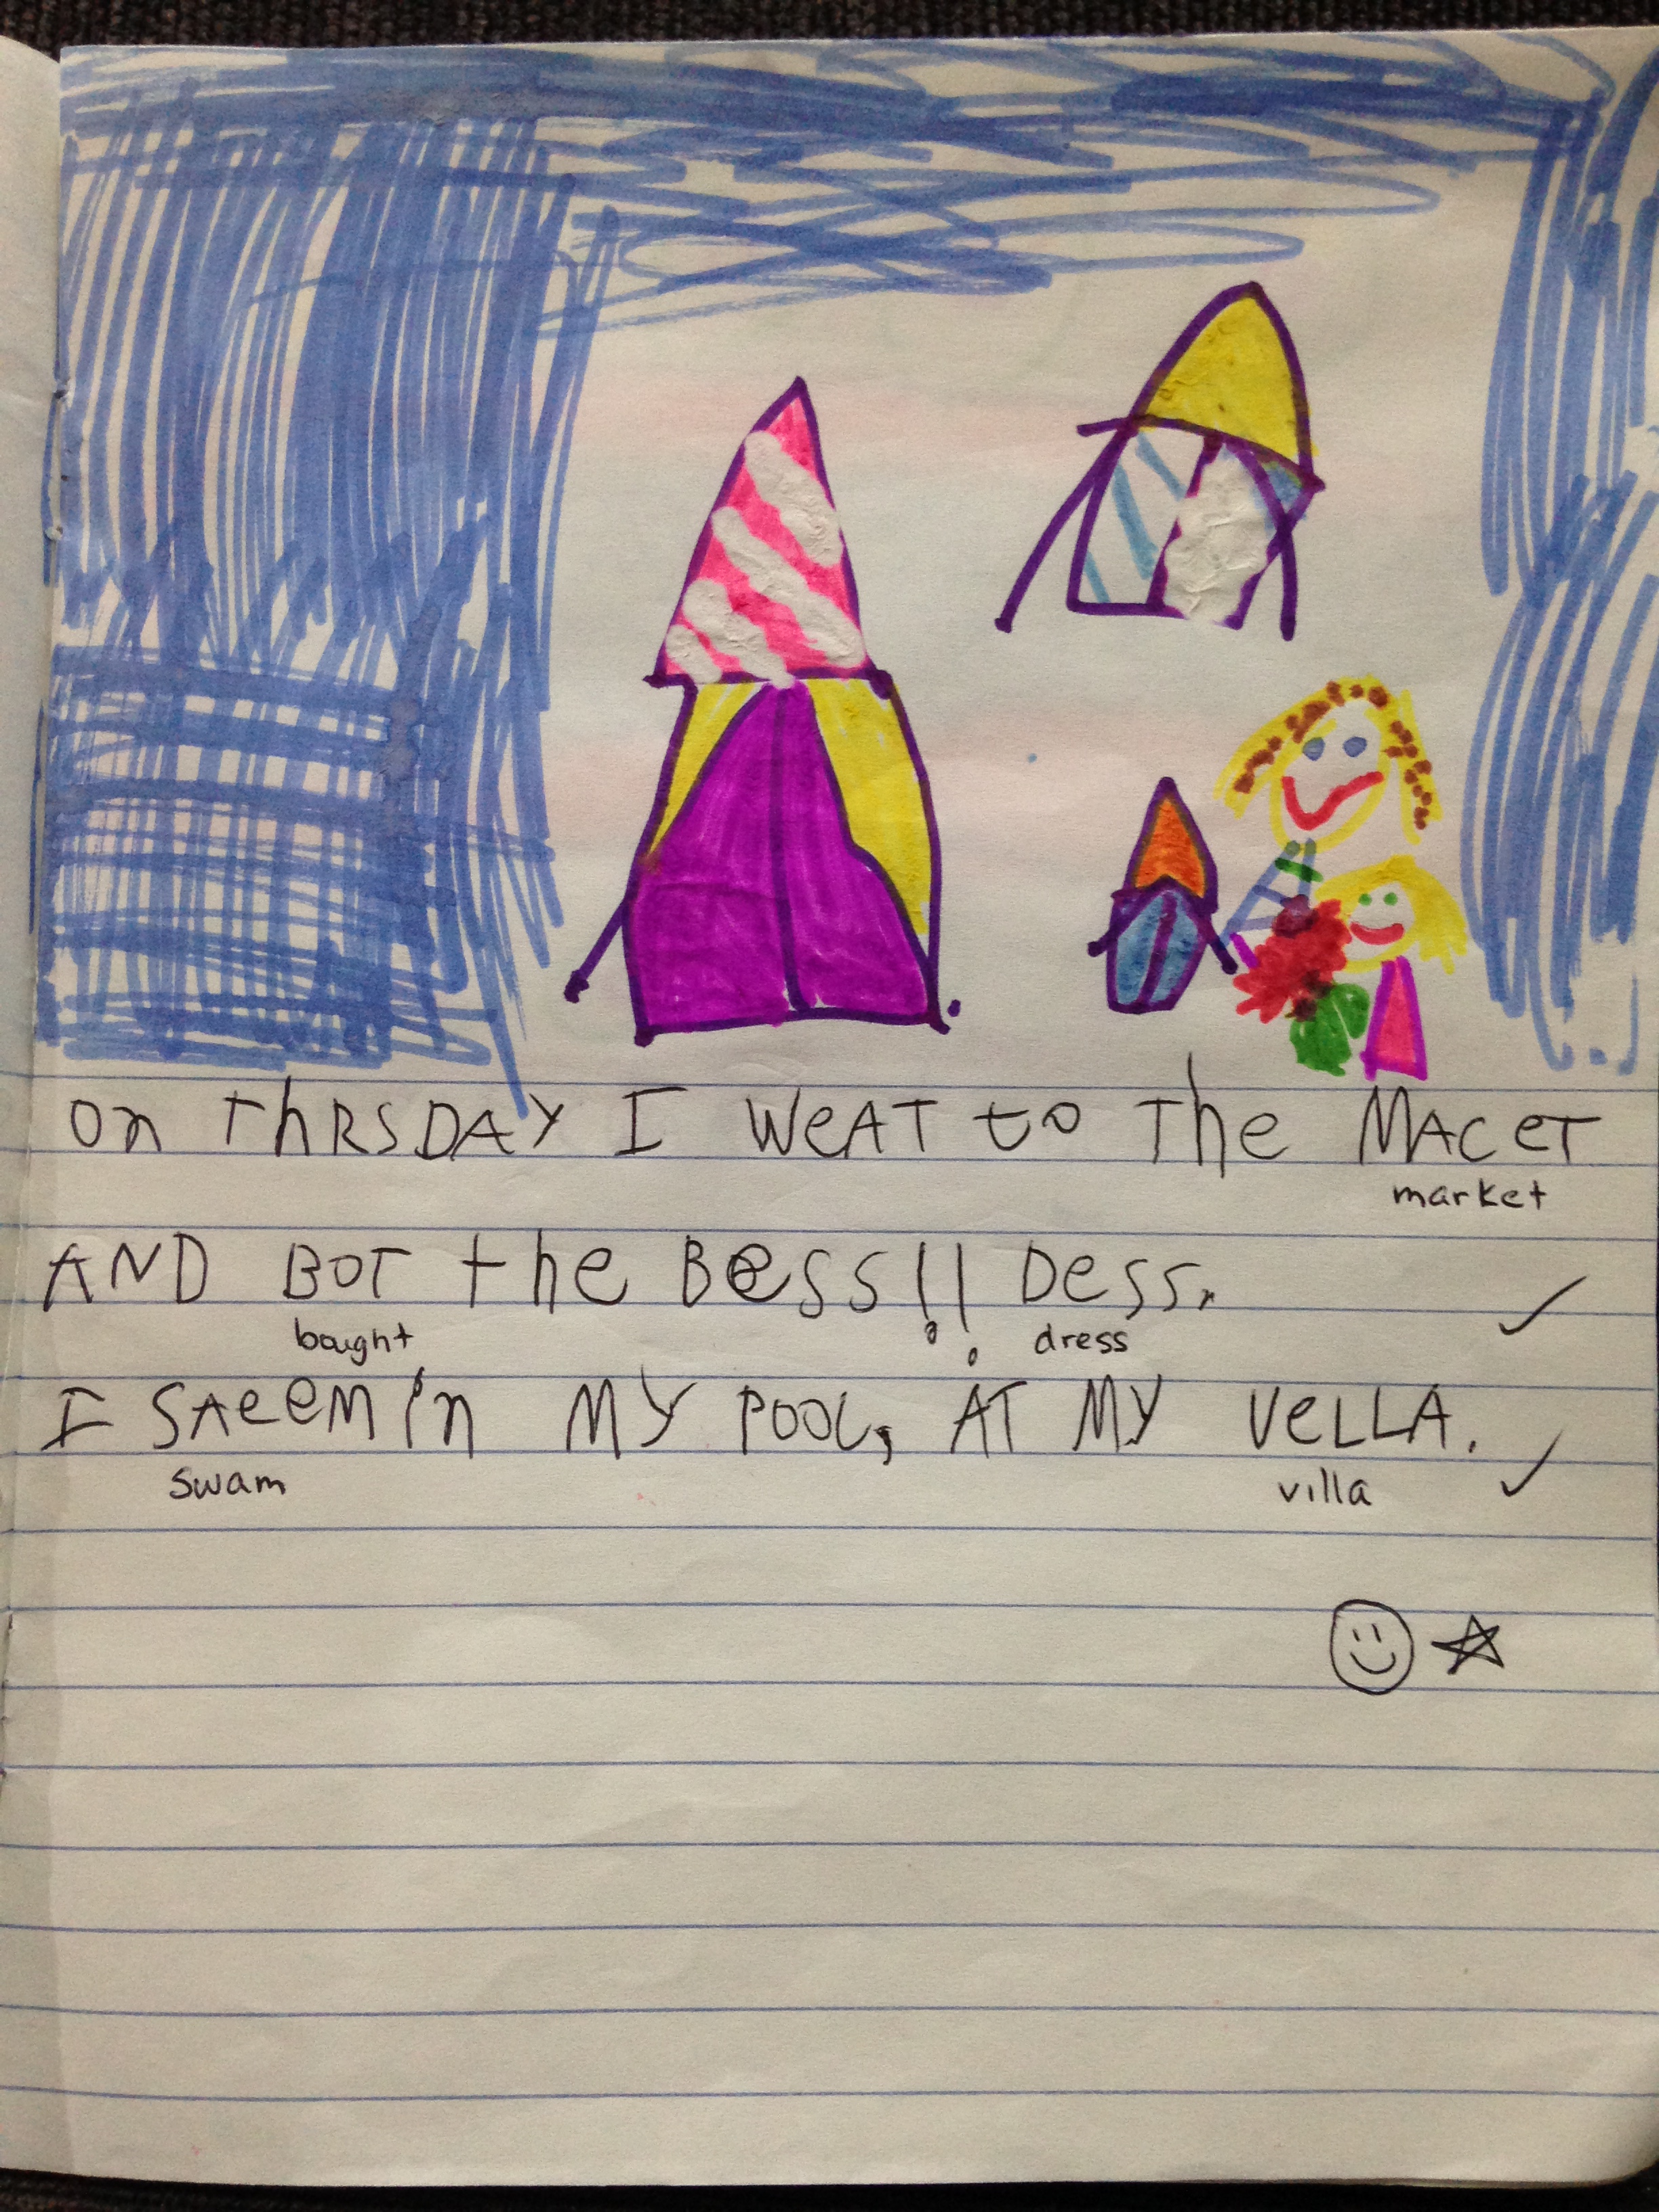 On ThRSDAY I WeAT to The MACeT
market
AND BOT the Bess!! Dess.
bought dress
I SAeeM in MY POOL, AT MY VeLLA.
swam villa